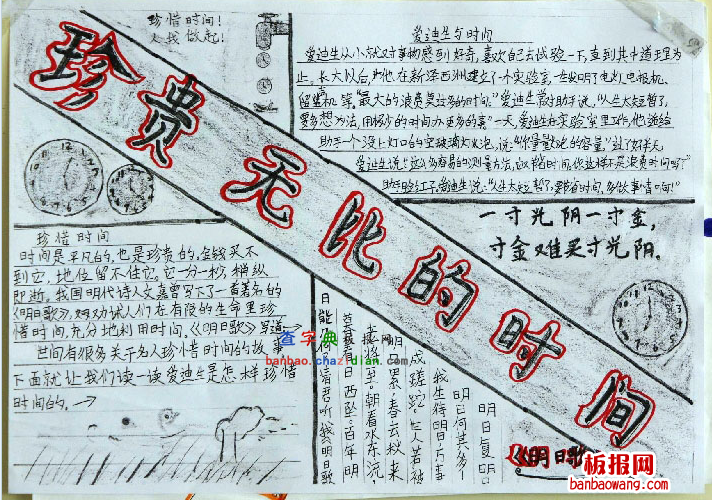 珍惜时间！
从我做起！
珍贵无比的时间
爱迪生与时间
爱迪生从小就对事物感到好奇，喜欢自己去试验一下，直到其中道理为
止。长大以后，他在新泽西洲建立了个实验室，一生发明了电灯、电报机、
留声机等，"最大的浪费莫过多的时间。"爱迪生常对助手说，"人生太短暂了，
要多想办法，用极少的时间办更多的事。"一天，爱迪生在实验室里工作，他递给
助手一个没上灯口的空玻璃灯泡，说："你量量灯泡的容量。"过了好半天
爱迪生说："这么多容易的测量方法，应又节省时间，你这样不是浪费时间吗？"
助手脸红了，爱迪生说："人生太短暂了，要节省时间，多做事情啊！"
一寸光阴一寸金，
寸金难买寸光阴。
珍惜时间
时间是平凡的，也是珍贵的，金钱买不
到它，地位留不住它。它一分一秒，稍纵
即逝。我国明代诗人文嘉曾写下了一首著名的
《明日歌》，劝诫人们在有限的生命里珍
惜时间，充分地利用时间。《明日歌》写道→
世间有很多关于名人珍惜时间的故事
下面就让我们读一读爱迪生是怎样珍惜
时间的。→
《明日歌》
明日复明日
明日何其多！
我生待明日，万事
成蹉跎。世人若被
明日累，春去秋来
老将至。朝看水东流，
暮看日西坠。百年明
日能几何？请君听我明日歌
查字典 板报网
banbao.chazidian.com
板报网
banbaowang.com